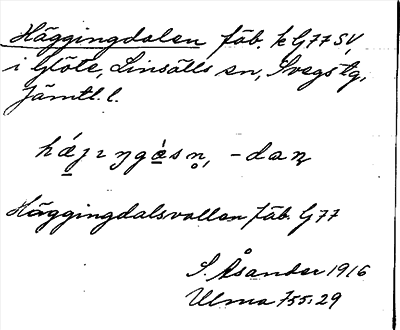 Häggingdalen fäb. k G 77 SV
i Glöte, Linsälls sn, Svegs tg,
Jämtl. l.
-dan
Häggingdalsvallen fäb. G 77
S. Åsander 1916
Ulma 755:29